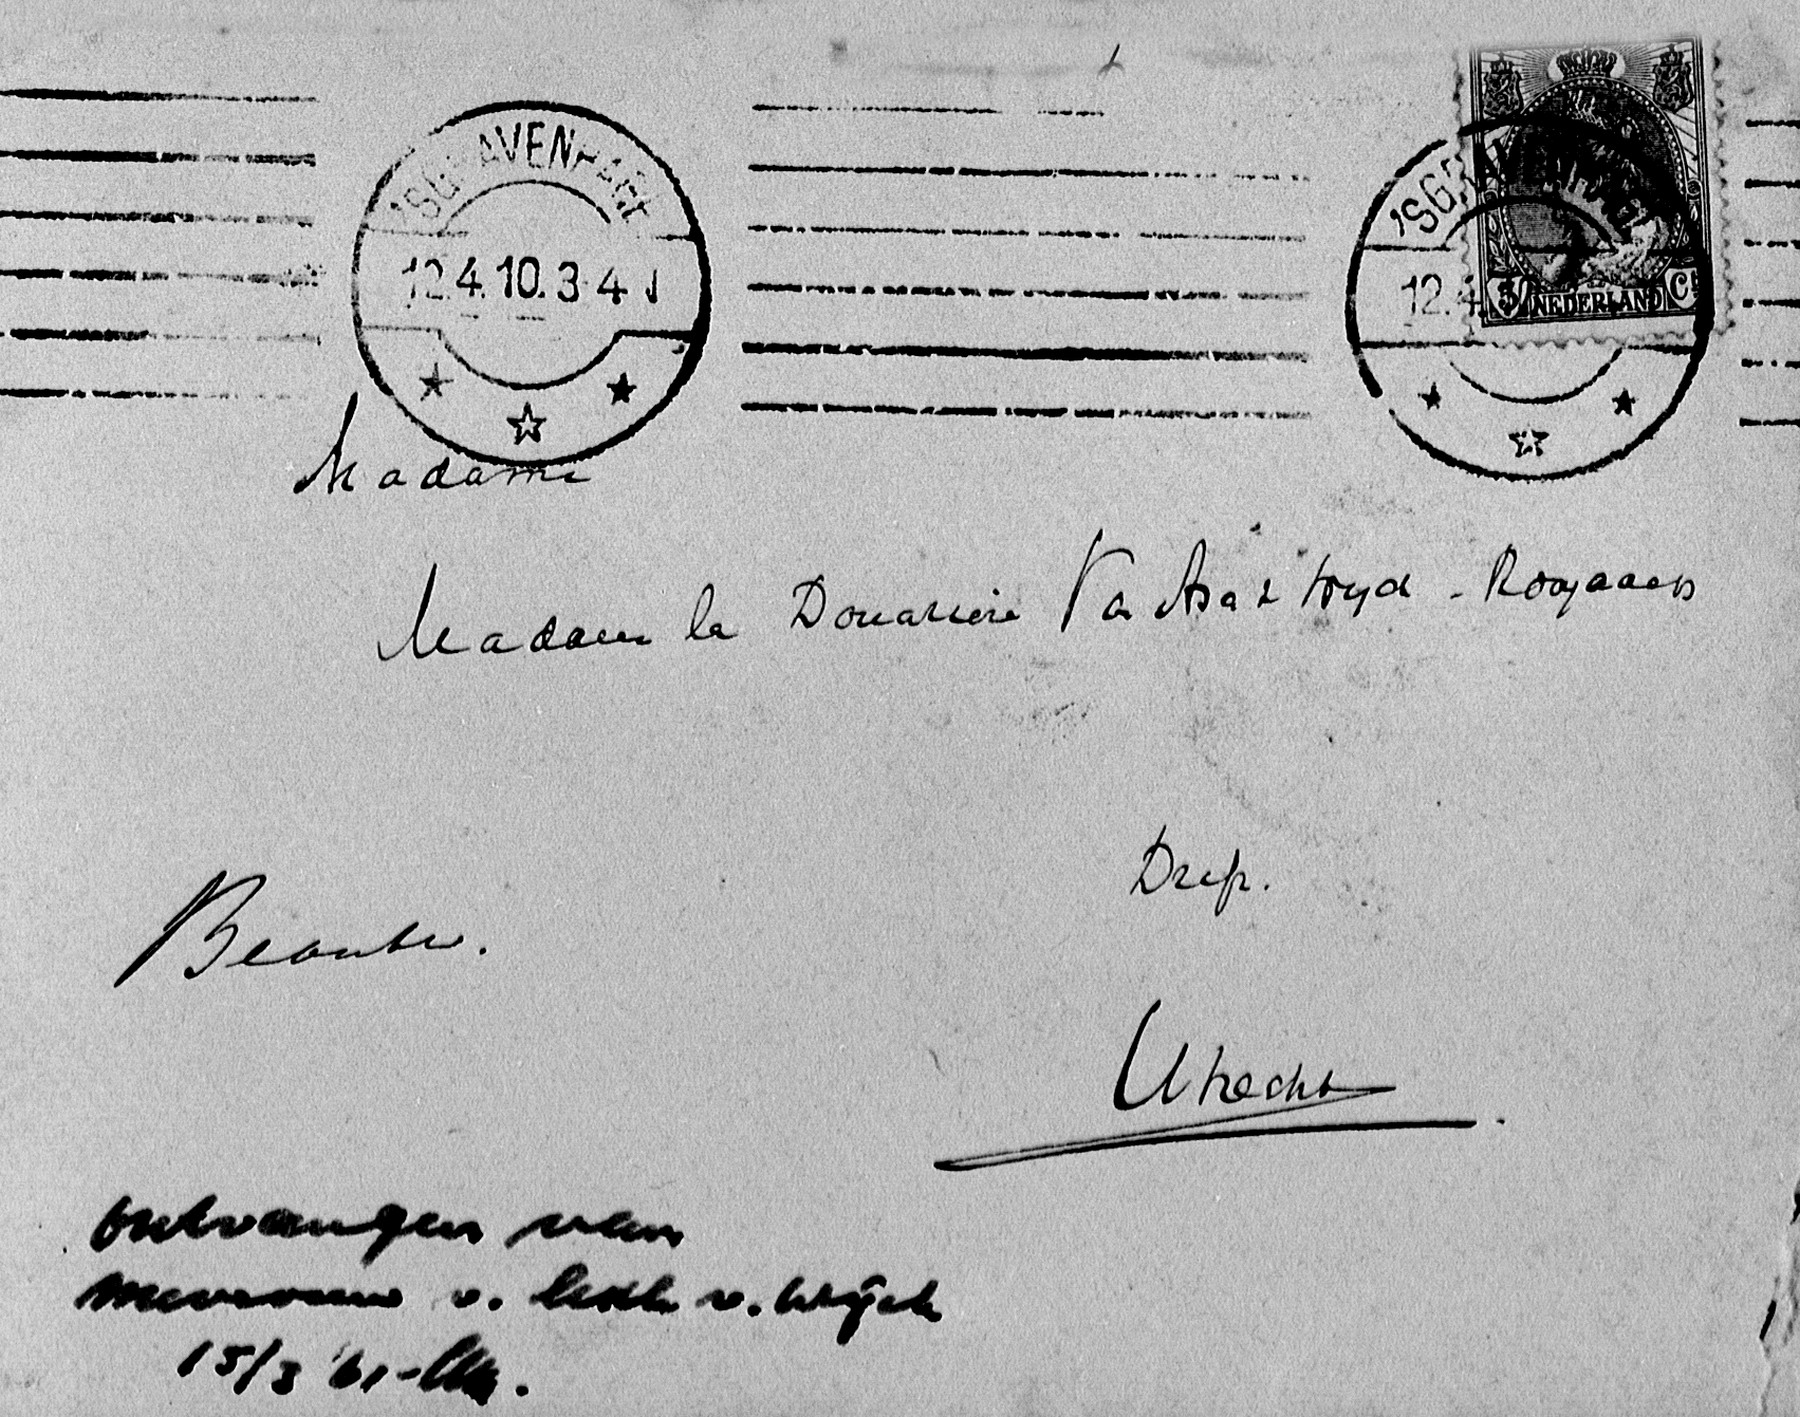 'SGRAVENHAGE
12.4.10.3-4
'SGRAVENHAGE
12.4
3 NEDERLAND Ct
Madame
Madame la Douairière Van Asch Wyck - Royaards
Drift.
Utrecht.
ontvangen van
mevrouw v. v. Wijck
15/3 '61